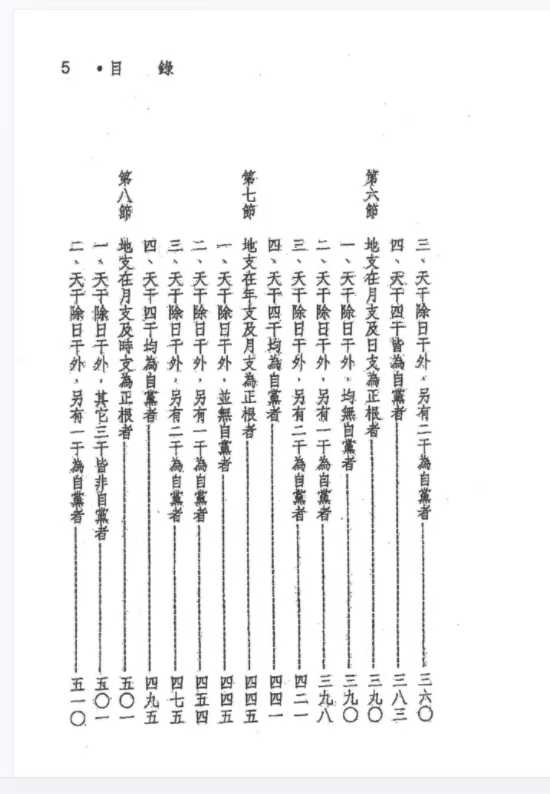 5 •目 錄
三、天干除日干外，另有二干為自黨者 三六〇
四、天干四干皆為自黨者 三八三
第六節 地支在月支及日支為正根者 三九〇
一、天干除日干外，均無自黨者 三九〇
二、天干除日干外，另有一干為自黨者 三九八
三、天干除日干外，另有二干為自黨者 四二一
四、天干四干均為自黨者 四四一
第七節 地支在年支及月支為正根者 四四五
一、天干除日干外，並無自黨者 四四五
二、天干除日干外，另有一干為自黨者 四五四
三、天干除日干外，另有二干為自黨者 四七五
四、天干四干均為自黨者 四九五
第八節 地支在月支及時支為正根者 五〇一
一、天干除日干外，其它三干皆非自黨者 五〇一
二、天干除日干外，另有一干為自黨者 五一〇